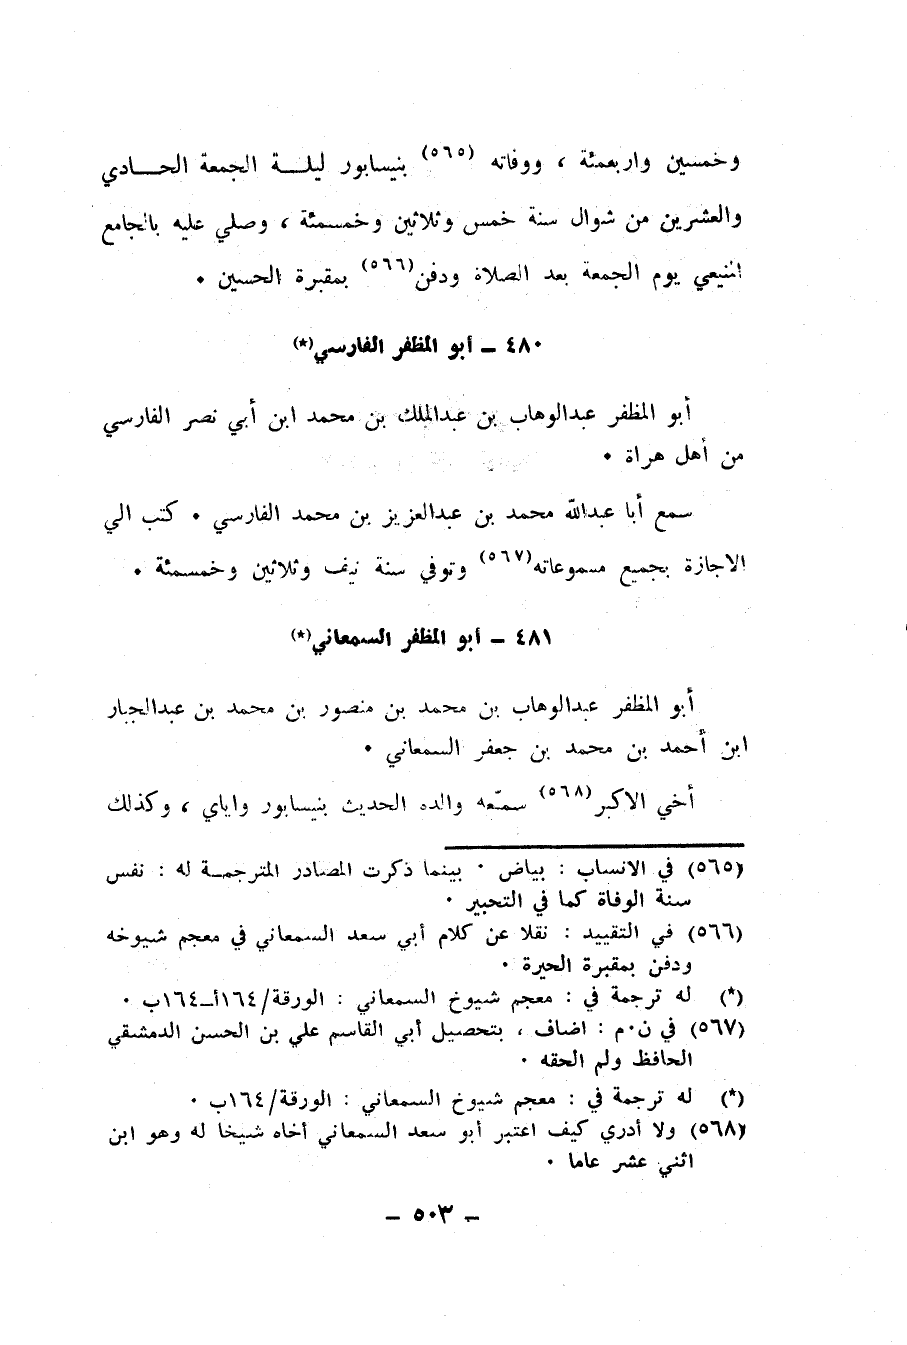 وخمسين واربعمئة ، ووفاته (٥٦٥) بنيسابور ليلـــة الجمعة الحـــادي
والعشرين من شوال سنة خمس وثلاثين وخمسمئة ، وصلي عليه بالجامع
المنيعي يوم الجمعة بعد الصلاة ودفن(٥٦٦) بمقبرة الحسين ٠
٤٨٠ ـ أبو المظفر الفارسي(*)
أبو المظفر عبدالوهاب بن عبدالملك بن محمد ابن أبي نصر الفارسي
من أهل هراة ٠
سمع أبا عبدالله محمد بن عبدالعزيز بن محمد الفارسي ٠ كتب الي
الاجازة بجميع مسموعاته(٥٦٧) وتوفي سنة نيف وثلاثين وخمسمئة ٠
٤٨١ ـ أبو المظفر السمعاني(*)
أبو المظفر عبدالوهاب بن محمد بن منصور بن محمد بن عبدالجبار
ابن أحمد بن محمد بن جعفر السمعاني ٠
أخي الاكبر(٥٦٨) سمّعه والده الحديث بنيسابور واياي ، وكذلك
(٥٦٥) في الانساب : بياض ٠ بينما ذكرت المصادر المترجمـة له : نفس
سنة الوفاة كما في التحبير ٠
(٥٦٦) في التقييد : نقلا عن كلام أبي سعد السمعاني في معجم شيوخه
ودفن بمقبرة الحيرة ٠
(*) له ترجمة في : معجم شيوخ السمعاني : الورقة/١٦٤أ‍ـ١٦٤ب ٠
(٥٦٧) في ن٠م : اضاف ، بتحصيل أبي القاسم علي بن الحسن الدمشقي
الحافظ ولم الحقه ٠
(*) له ترجمة في : معجم شيوخ السمعاني : الورقة/١٦٤ب ٠
(٥٦٨) ولا أدري كيف اعتبر أبو سعد السمعاني أخاه شيخا له وهو ابن
اثني عشر عاما ٠
ـ ٥٠٣ ـ